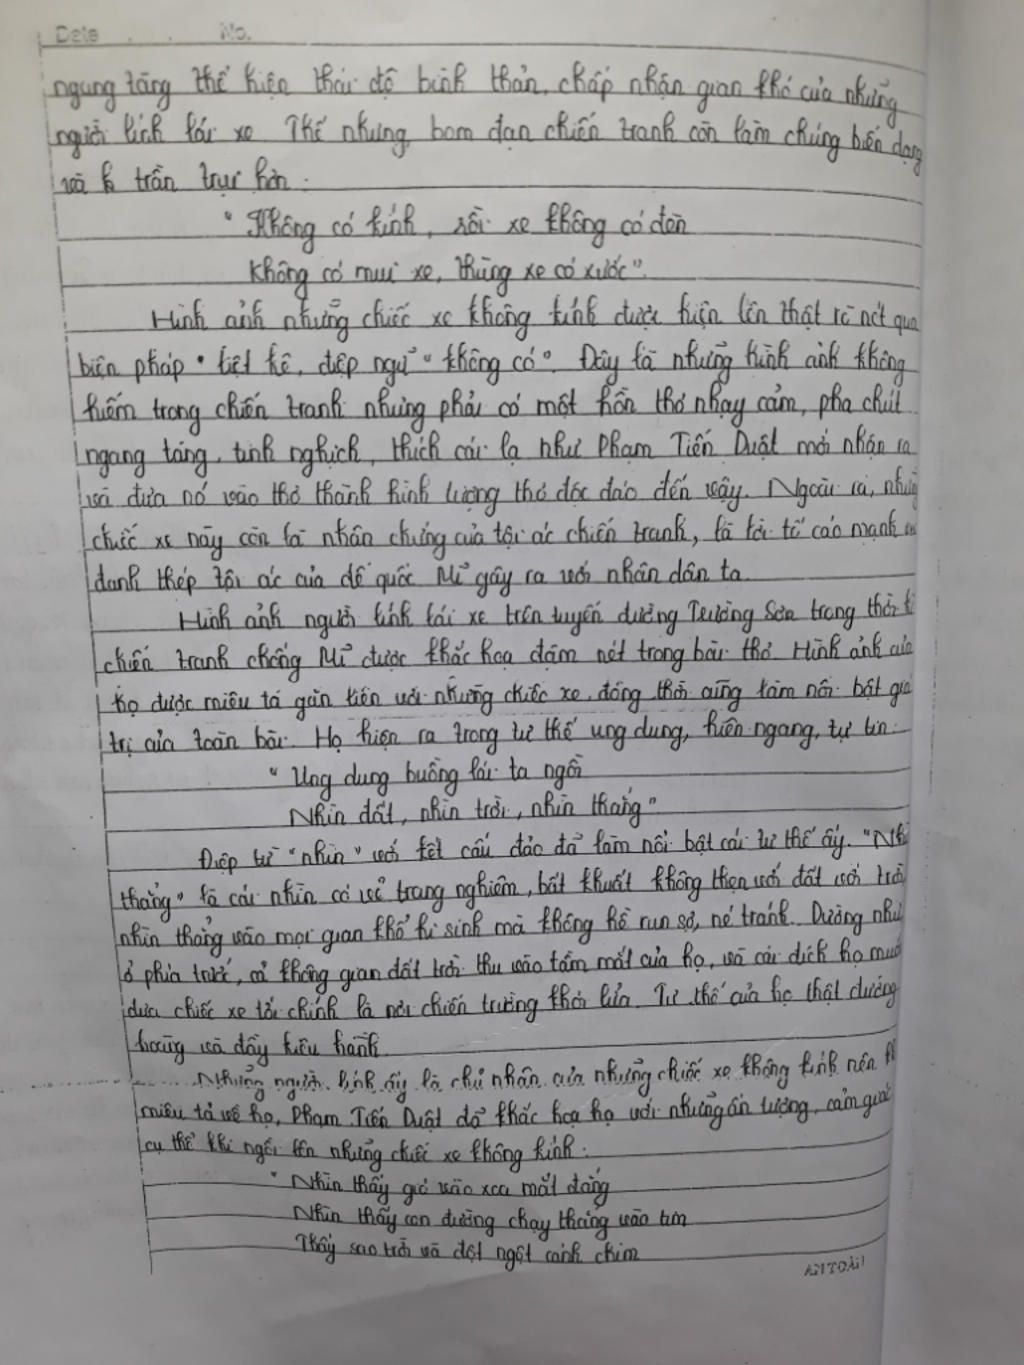 Date . . No.
ngang tàng thể hiện thái độ bình thản, chấp nhận gian khó của những
người lính lái xe Thế nhưng, bom đạn chiến tranh còn làm chúng biến dạng
và trần trụi hơn:
" Không có kính, rồi xe không có đèn
Không có mui xe, thùng xe có xước".
Hình ảnh những chiếc xe không kính được hiện lên thật rõ nét qua
biện pháp " liệt kê, điệp ngữ " không có". Đây là những hình ảnh không
hiếm trong chiến tranh nhưng phải có một hồn thơ nhạy cảm, pha chút
ngang tàng, tinh nghịch, thích cái lạ như Phạm Tiến Duật mới nhận ra
và đưa nó vào thơ thành hình tượng thơ độc đáo đến vậy. Ngoài ra, những
chiếc xe này còn là nhân chứng của tội ác chiến tranh, là lời tố cáo mạnh
đanh thép tội ác của đế quốc Mĩ gây ra với nhân dân ta
Hình ảnh người lính lái xe trên tuyến đường Trường Sơn trong thời
chiến tranh chống Mĩ được khắc họa đậm nét trong bài thơ. Hình ảnh của
họ được miêu tả gắn liền với những chiếc xe, đồng thời cũng làm nổi bật giá
trị của toàn bài. Họ hiện ra trong tư thế ung dung, hiên ngang, tự tin:
" Ung dung buồng lái ta ngồi
Nhìn đất, nhìn trời, nhìn thẳng"
Điệp từ "nhìn" với kết cấu đảo đã làm nổi bật cái tư thế ấy. "Nhìn
thẳng" là cái nhìn có vẻ trang nghiêm, bất khuất không thẹn với đất với trời
nhìn thẳng vào mọi gian khổ hi sinh mà không hề run sợ, né tránh. Dường như
ở phía trước, cả không gian đất trời thu vào tầm mắt của họ, và cái đích họ muốn
đưa chiếc xe tới chính là nơi chiến trường khói lửa. Tư thế của họ thật đường
hoàng và đầy kiêu hãnh
Những người lính ấy là chủ nhân của những chiếc xe không kính nên
miêu tả về họ, Phạm Tiến Duật đã khắc họa họ với những ấn tượng, cảm giác
cụ thể khi ngồi lên những chiếc xe không kính:
" Nhìn thấy gió vào xoa mắt đắng
Nhìn thấy con đường chạy thẳng vào tim
Thấy sao trời và đột ngột cánh chim